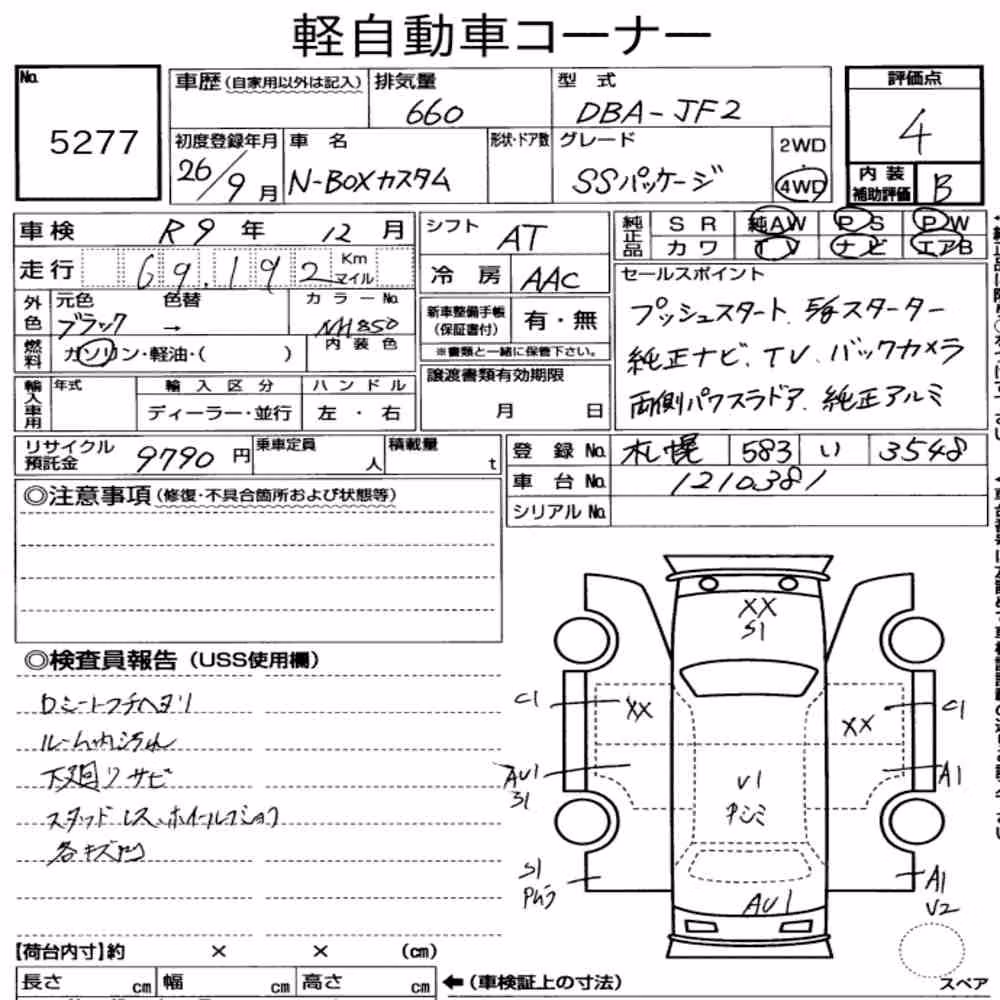 軽自動車コーナー
No. 5277
車歴(自家用以外は記入) 排気量 660 型式 DBA-JF2
初度登録年月 26/9月 車名 N-BOXカスタム 形状・ドア数 グレード SSパッケージ 2WD・4WD
評価点 4
内装補助評価 B
車検 R9年 12月
走行 69,192 Km マイル
シフト AT
冷房 AAC
純正品 SR 純AW PS PW
カワ TV ナビ エアB
外色 元色 ブラック 色替 → カラーNo. NH850
内装色
燃料 ガソリン・軽油・( )
新車整備手帳(保証書付) 有・無
※書類と一緒に保管下さい。
セールスポイント
プッシュスタート、5gスターター
純正ナビ、TV、バックカメラ
両側パワスラドア、純正アルミ
輸入車用 年式 輸入区分 ディーラー・並行 ハンドル 左・右
譲渡書類有効期限 月 日
リサイクル預託金 9790円 乗車定員 人 積載量 t
登録No. 札幌 583 い 3548
車台No. 1210381
シリアルNo.
◎注意事項(修復・不具合箇所および状態等)
◎検査員報告(USS使用欄)
Dシートフチヘタリ
ルーム内汚れ
下廻りサビ
スタッドレス、ホイールフショク
各キズ凹
XX
S1
C1
XX
XX
C1
AU1
S1
A1
U1
Pシミ
S1
Pムラ
AU1
A1
U2
スペア
【荷台内寸】約 × × (cm)
長さ cm 幅 cm 高さ cm ←(車検証上の寸法)